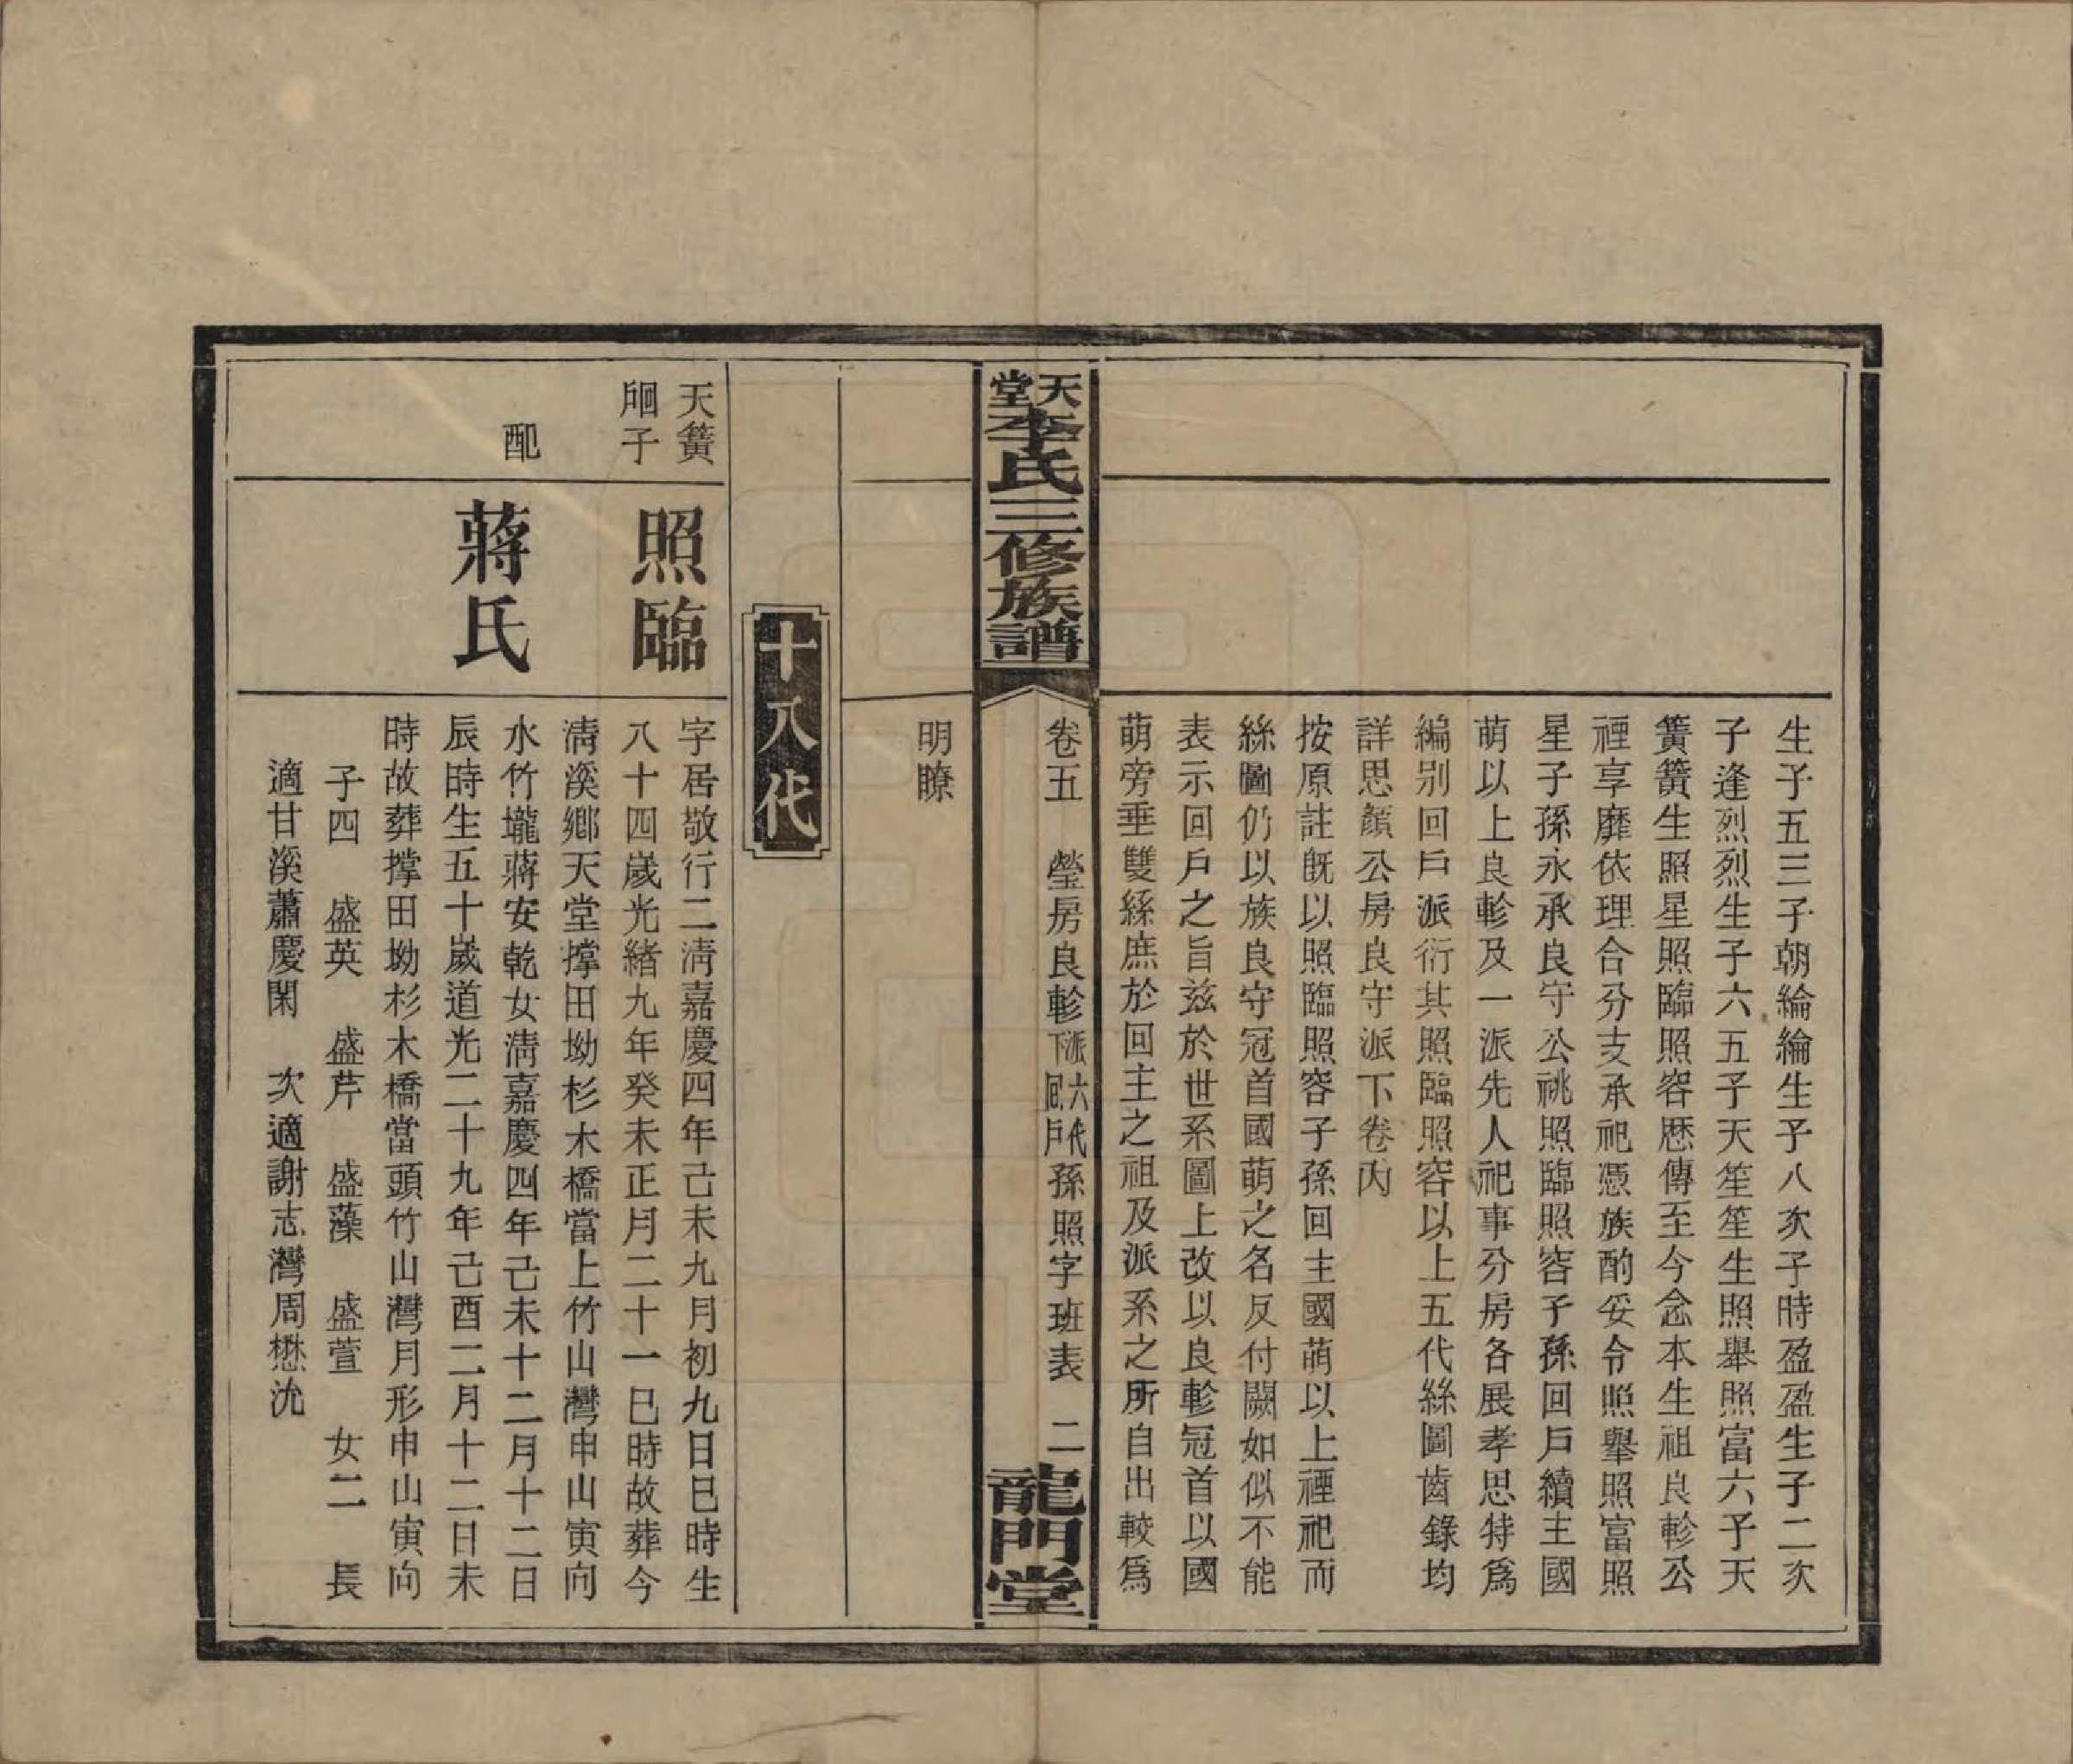 生子五三子朝綸綸生子八次子時盈盈生子二次
子逢烈烈生子六五子天笙笙生照舉照富六子天
簧簧生照星照臨照容歷傳至今念本生祖良軫公
禋享靡依理合分支承祀憑族酌妥令照舉照富照
星子孫永承良守公祧照臨照容子孫回戶續主國
萌以上良軫及一派先人祀事分房各展孝思特爲
編别回戶派衍其照臨照容以上五代絲圖齒錄均
詳思顏公房良守派下卷丙
按原註旣以照臨照容子孫回主國萌以上禋祀而
絲圖仍以族良守冠首國萌之名反付闕如似不能
表示回戶之旨茲於世系圖上改以良軫冠首以國
萌旁垂雙絲庶於回主之祖及派系之所自出較爲
天堂李氏三修族譜
卷五 瑩房良軫派下六代回戶孫照字班表 二
龍門堂
明瞭
十八代
天簧
嗣子
照臨
字居敬行二淸嘉慶四年己未九月初九日巳時生
八十四歲光緒九年癸未正月二十一巳時故葬今
淸溪鄉天堂撑田坳杉木橋當上竹山灣申山寅向
配
蔣氏
水竹壠蔣安乾女淸嘉慶四年己未十二月十二日
辰時生五十歲道光二十九年己酉二月十二日未
時故葬撑田坳杉木橋當頭竹山灣月形申山寅向
子四 盛英 盛芹 盛藻 盛萱 女二 長
適甘溪蕭慶閑 次適謝志灣周懋沇